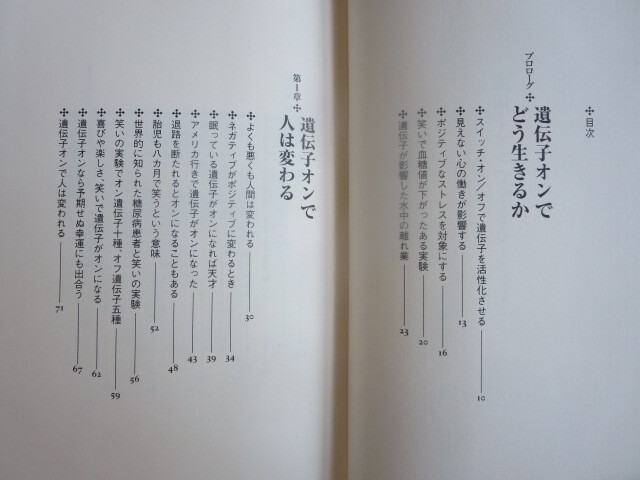 ✣目次
プロローグ✣遺伝子オンで
どう生きるか
✣スイッチ・オン/オフで遺伝子を活性化させる 10
✣見えない心の働きが影響する 13
✣ポジティブなストレスを対象にする 16
✣笑いで血糖値が下がったある実験 20
✣遺伝子が影響した水中の離れ業 23
第1章✣遺伝子オンで
人は変わる
✣よくも悪くも人間は変われる 30
✣ネガティブがポジティブに変わるとき 34
✣眠っている遺伝子がオンになれば天才 39
✣アメリカ行きで遺伝子がオンになった 43
✣退路を断たれるとオンになることもある 48
✣胎児も八カ月で笑うという意味 52
✣世界的に知られた糖尿病患者と笑いの実験 56
✣笑いの実験でオン遺伝子十種、オフ遺伝子五種 59
✣喜びや楽しさ、笑いで遺伝子がオンになる 62
✣遺伝子オンなら予期せぬ幸運にも出合う 67
✣遺伝子オンで人は変われる 71